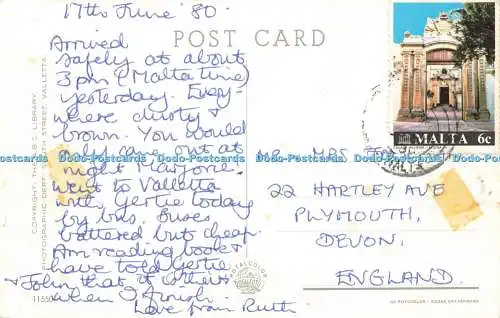 17th June '80.
POST CARD
Arrived
safely at about
3pm (Malta time)
yesterday. Every-
where dusty &
brown. You would
only come out at
night Marjorie.
Went to Valletta
with Gertie today
by bus. Buses
battered but cheap.
Am reading book &
have told Gertie
& John that it is theirs
when I finish.
Love from Ruth
MALTA 6c
MALTA
MR MRS
22 HARTLEY AVE
PLYMOUTH,
DEVON.
ENGLAND.
COPYRIGHT, THE A.B.C LIBRARY,
PHOTOGRAPHIC DEPT. SOUTH STREET, VALLETTA.
Dodo-Postcards Dodo-Postcards Dodo-Postcards Dodo-Postcards Dodo-Postcards
Dodo-Postcards Dodo-Postcards Dodo-Postcards Dodo-Postcards Dodo-Postcards
ROTALCOLOR